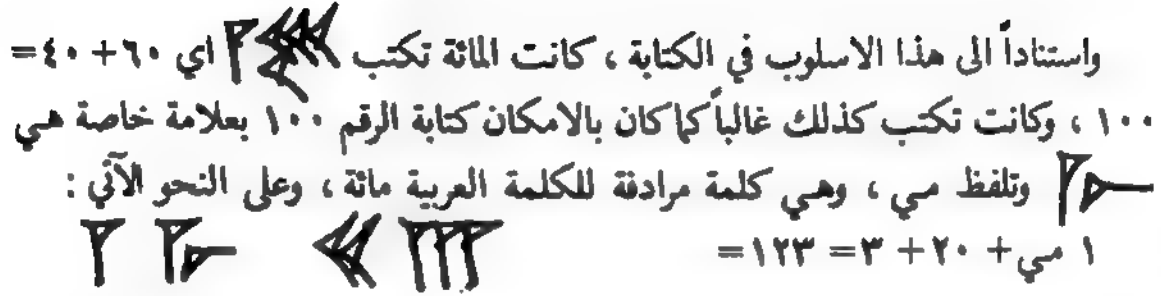 واستناداً الى هذا الاسلوب في الكتابة ، كانت المائة تكتب 𒁹𒐏 اي ٦٠ + ٤٠ =
١٠٠ ، وكانت تكتب كذلك غالباً كما كان بالامكان كتابة الرقم ١٠٠ بعلامة خاصة هي
𒈨 وتلفظ مي ، وهي كلمة مرادفة للكلمة العربية مائة ، وعلى النحو الآتي :
١ مي + ٢٠ + ٣ = ١٢٣ = 𒁹 𒈨 𒎙 𒐈